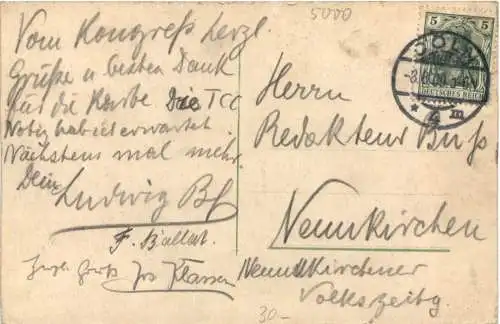 5000
Vom Kongreß herzl.
Grüße u besten Dank
für die Karte. Die TCC
Notiz habe ich erwartet.
Nächstens mal mehr.
Dein
Ludwig
F. Ballat.
Jos Klassen
5 5
DEUTSCHES REICH
CÖLN
4 m
Herrn
Redakteur Buß
Neunkirchen
Neunkirchener
Volkszeitg.
30.-